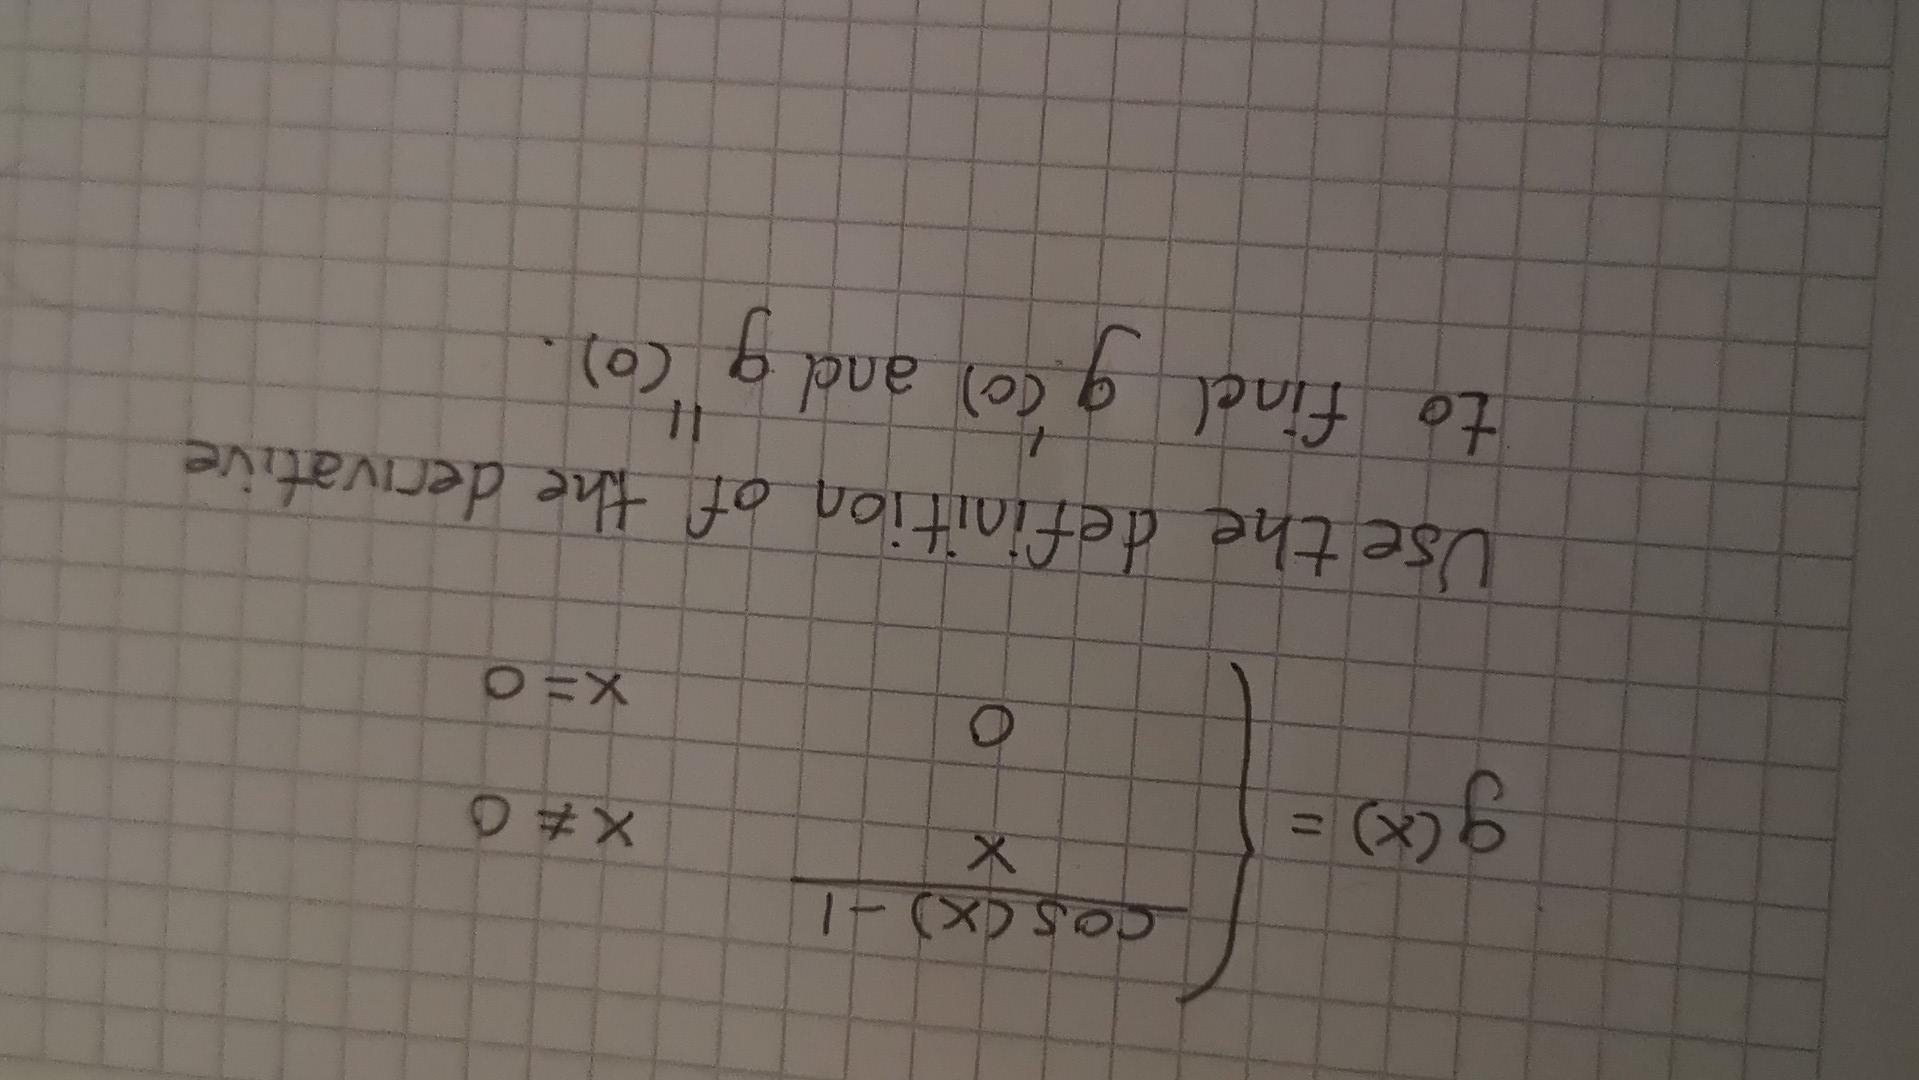 g(x) = { cos(x) - 1 / x    x ≠ 0
0    x = 0
Use the definition of the derivative
to find g'(0) and g''(0).